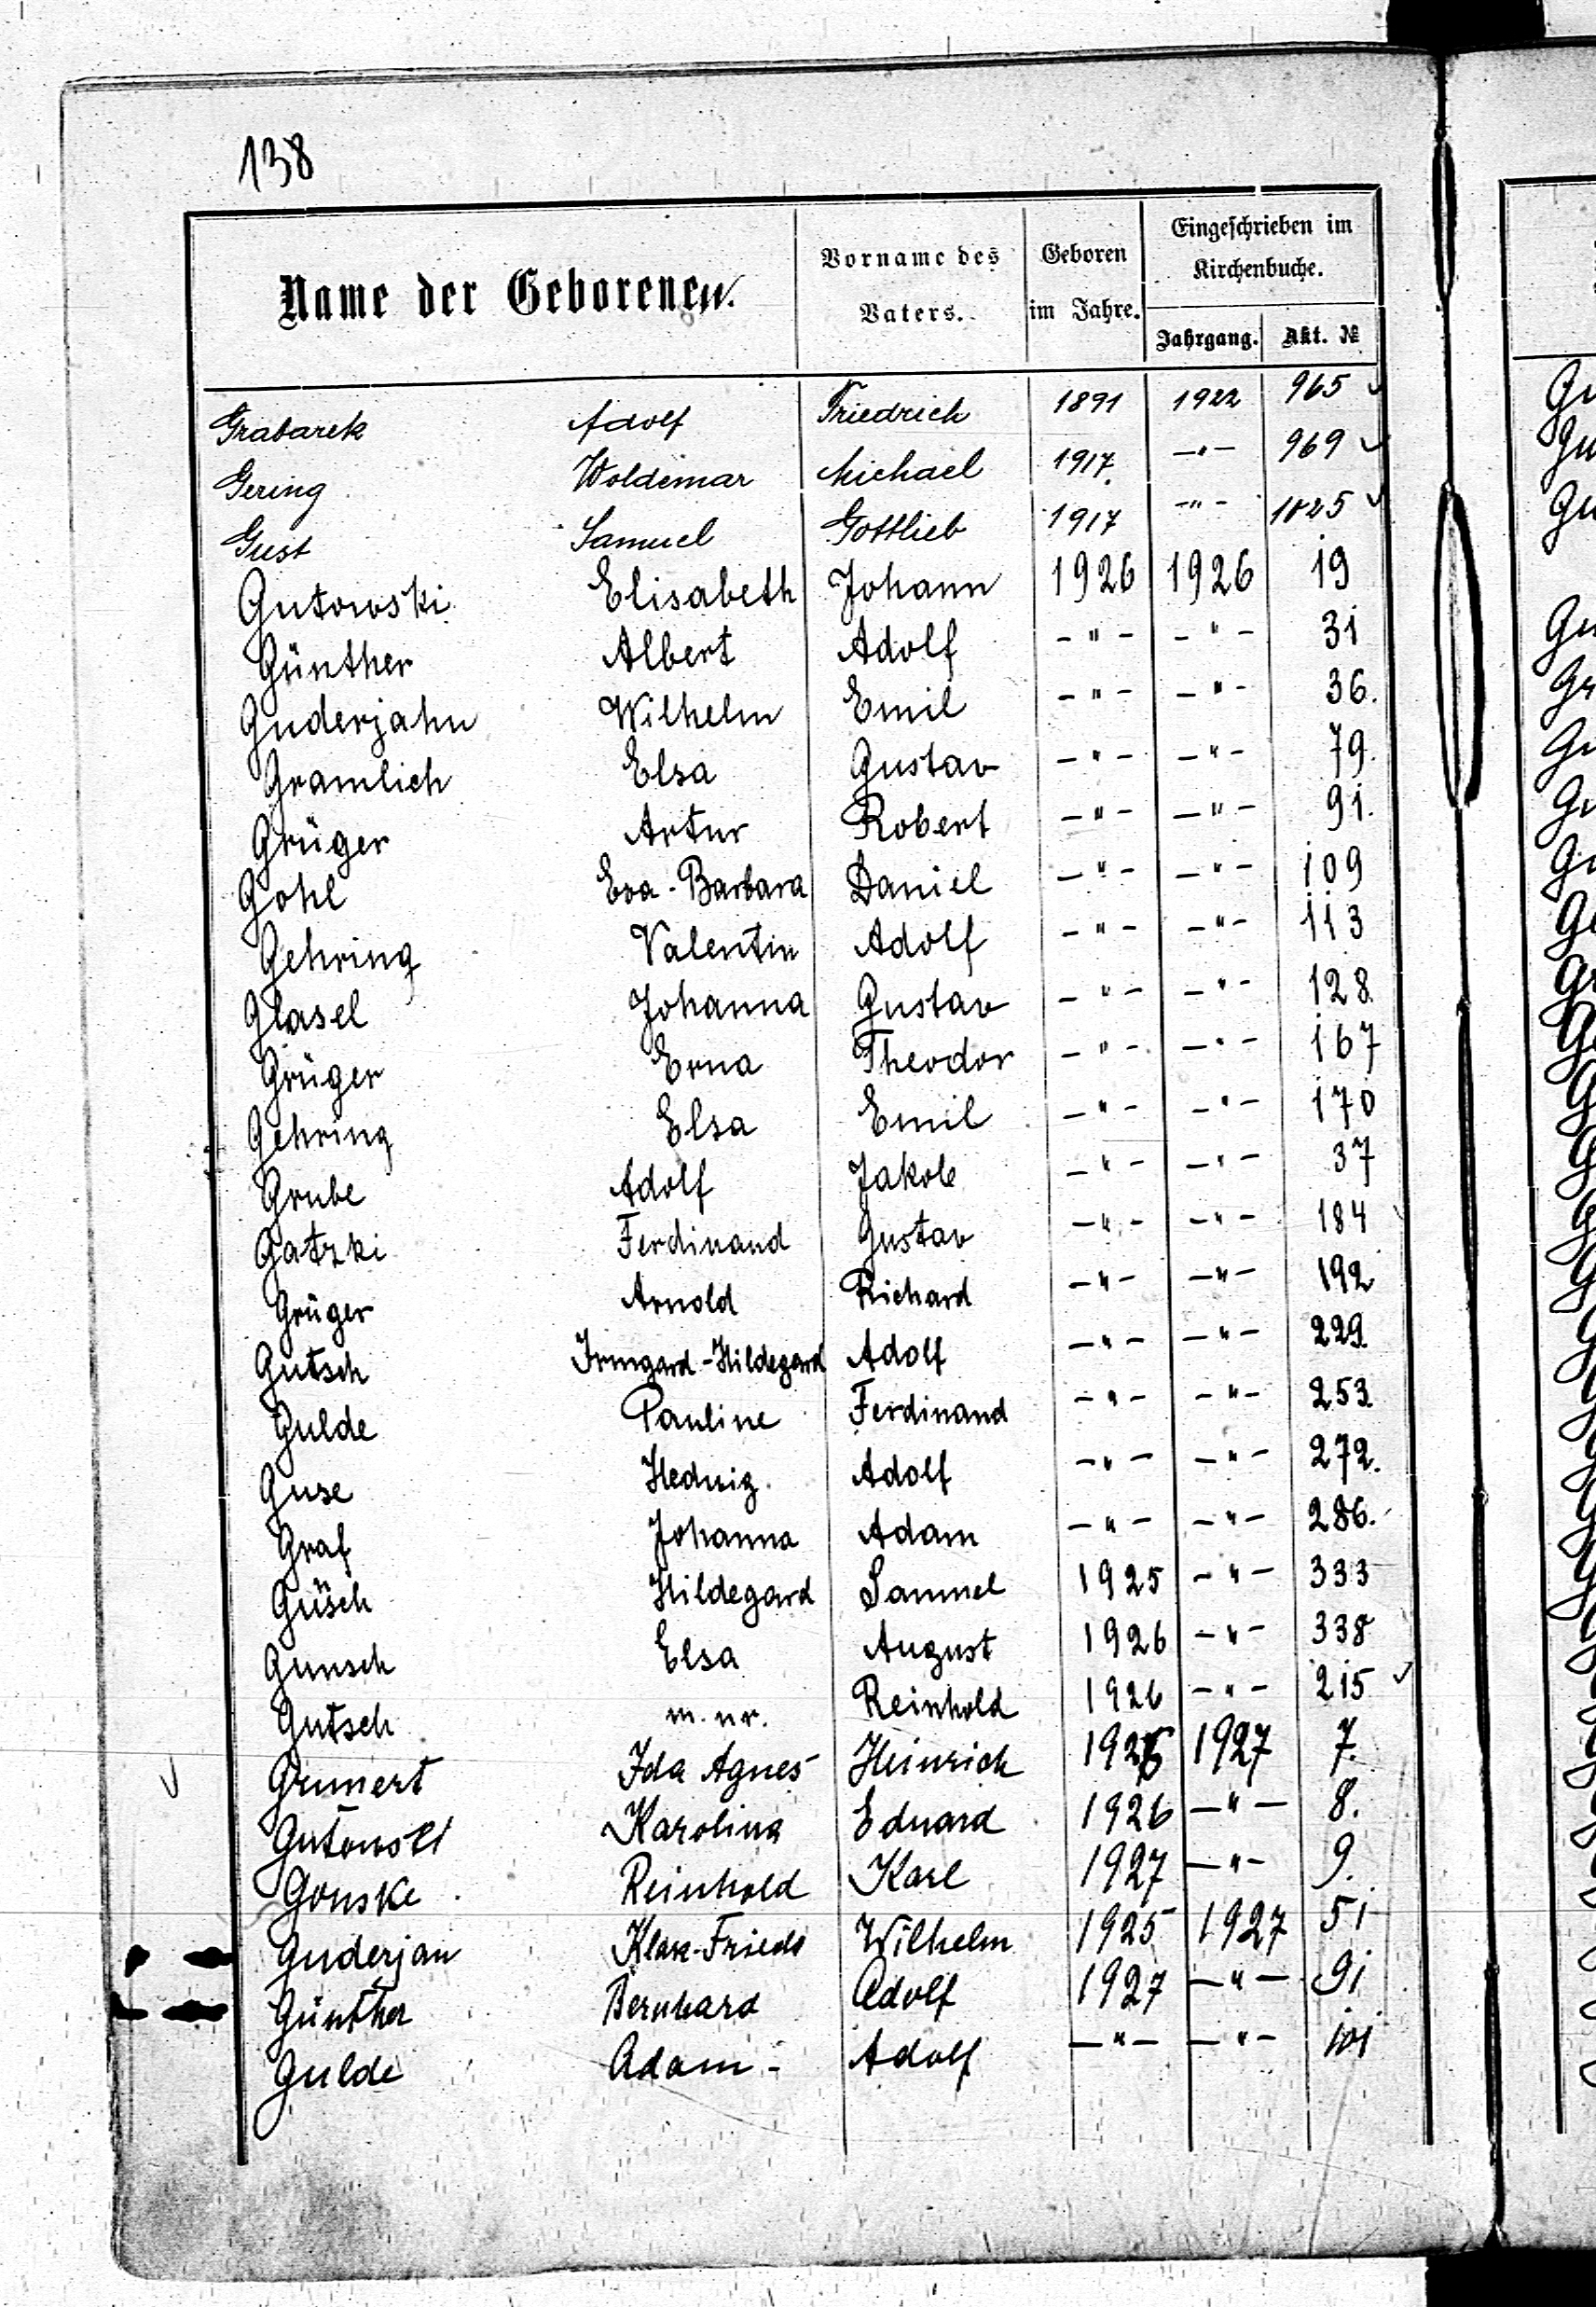 138
Name der Geborenen. Vorname des Vaters. Geboren im Jahre. Eingeschrieben im Kirchenbuche.
Jahrgang. Akt. №
Grabarek Adolf Friedrich 1891 1922 965 ✓
Gering Woldemar Michael 1917 —"— 969 ✓
Gust Samuel Gottlieb 1917 —"— 1025 ✓
Gutowski Elisabeth Johann 1926 1926 19
Günther Albert Adolf —"— —"— 31
Guderjahn Wilhelm Emil —"— —"— 36.
Gramlich Elsa Gustav —"— —"— 79.
Grüger Artur Robert —"— —"— 91.
Gohl Eva-Barbara Daniel —"— —"— 109
Gehring Valentin Adolf —"— —"— 113
Glasel Johanna Gustav —"— —"— 128.
Grüger Erna Theodor —"— —"— 167
Gehring Elsa Emil —"— —"— 170
Grube Adolf Jakob —"— —"— 37
Gatzki Ferdinand Gustav —"— —"— 184
Grüger Arnold Richard —"— —"— 192
Gutsch Irmgard-Hildegard Adolf —"— —"— 229.
Gulde Pauline Ferdinand —"— —"— 253.
Guse Hedwig Adolf —"— —"— 272.
Graf Johanna Adam —"— —"— 286.
Güsch Hildegard Samuel 1925 —"— 333
Gunsch Elsa August 1926 —"— 338
Gutsch m. nr. Reinhold 1926 —"— 215 ✓
✓ Grunert Ida Agnes Heinrich 1926 1927 7.
Gutowski Karolina Eduard 1926 —"— 8.
Gonske Reinhold Karl 1927 —"— 9.
Guderjan Klara-Frieda Wilhelm 1925 1927 51
Günther Bernhard Adolf 1927 —"— 91
Gulde Adam - Adolf —"— —"— 101